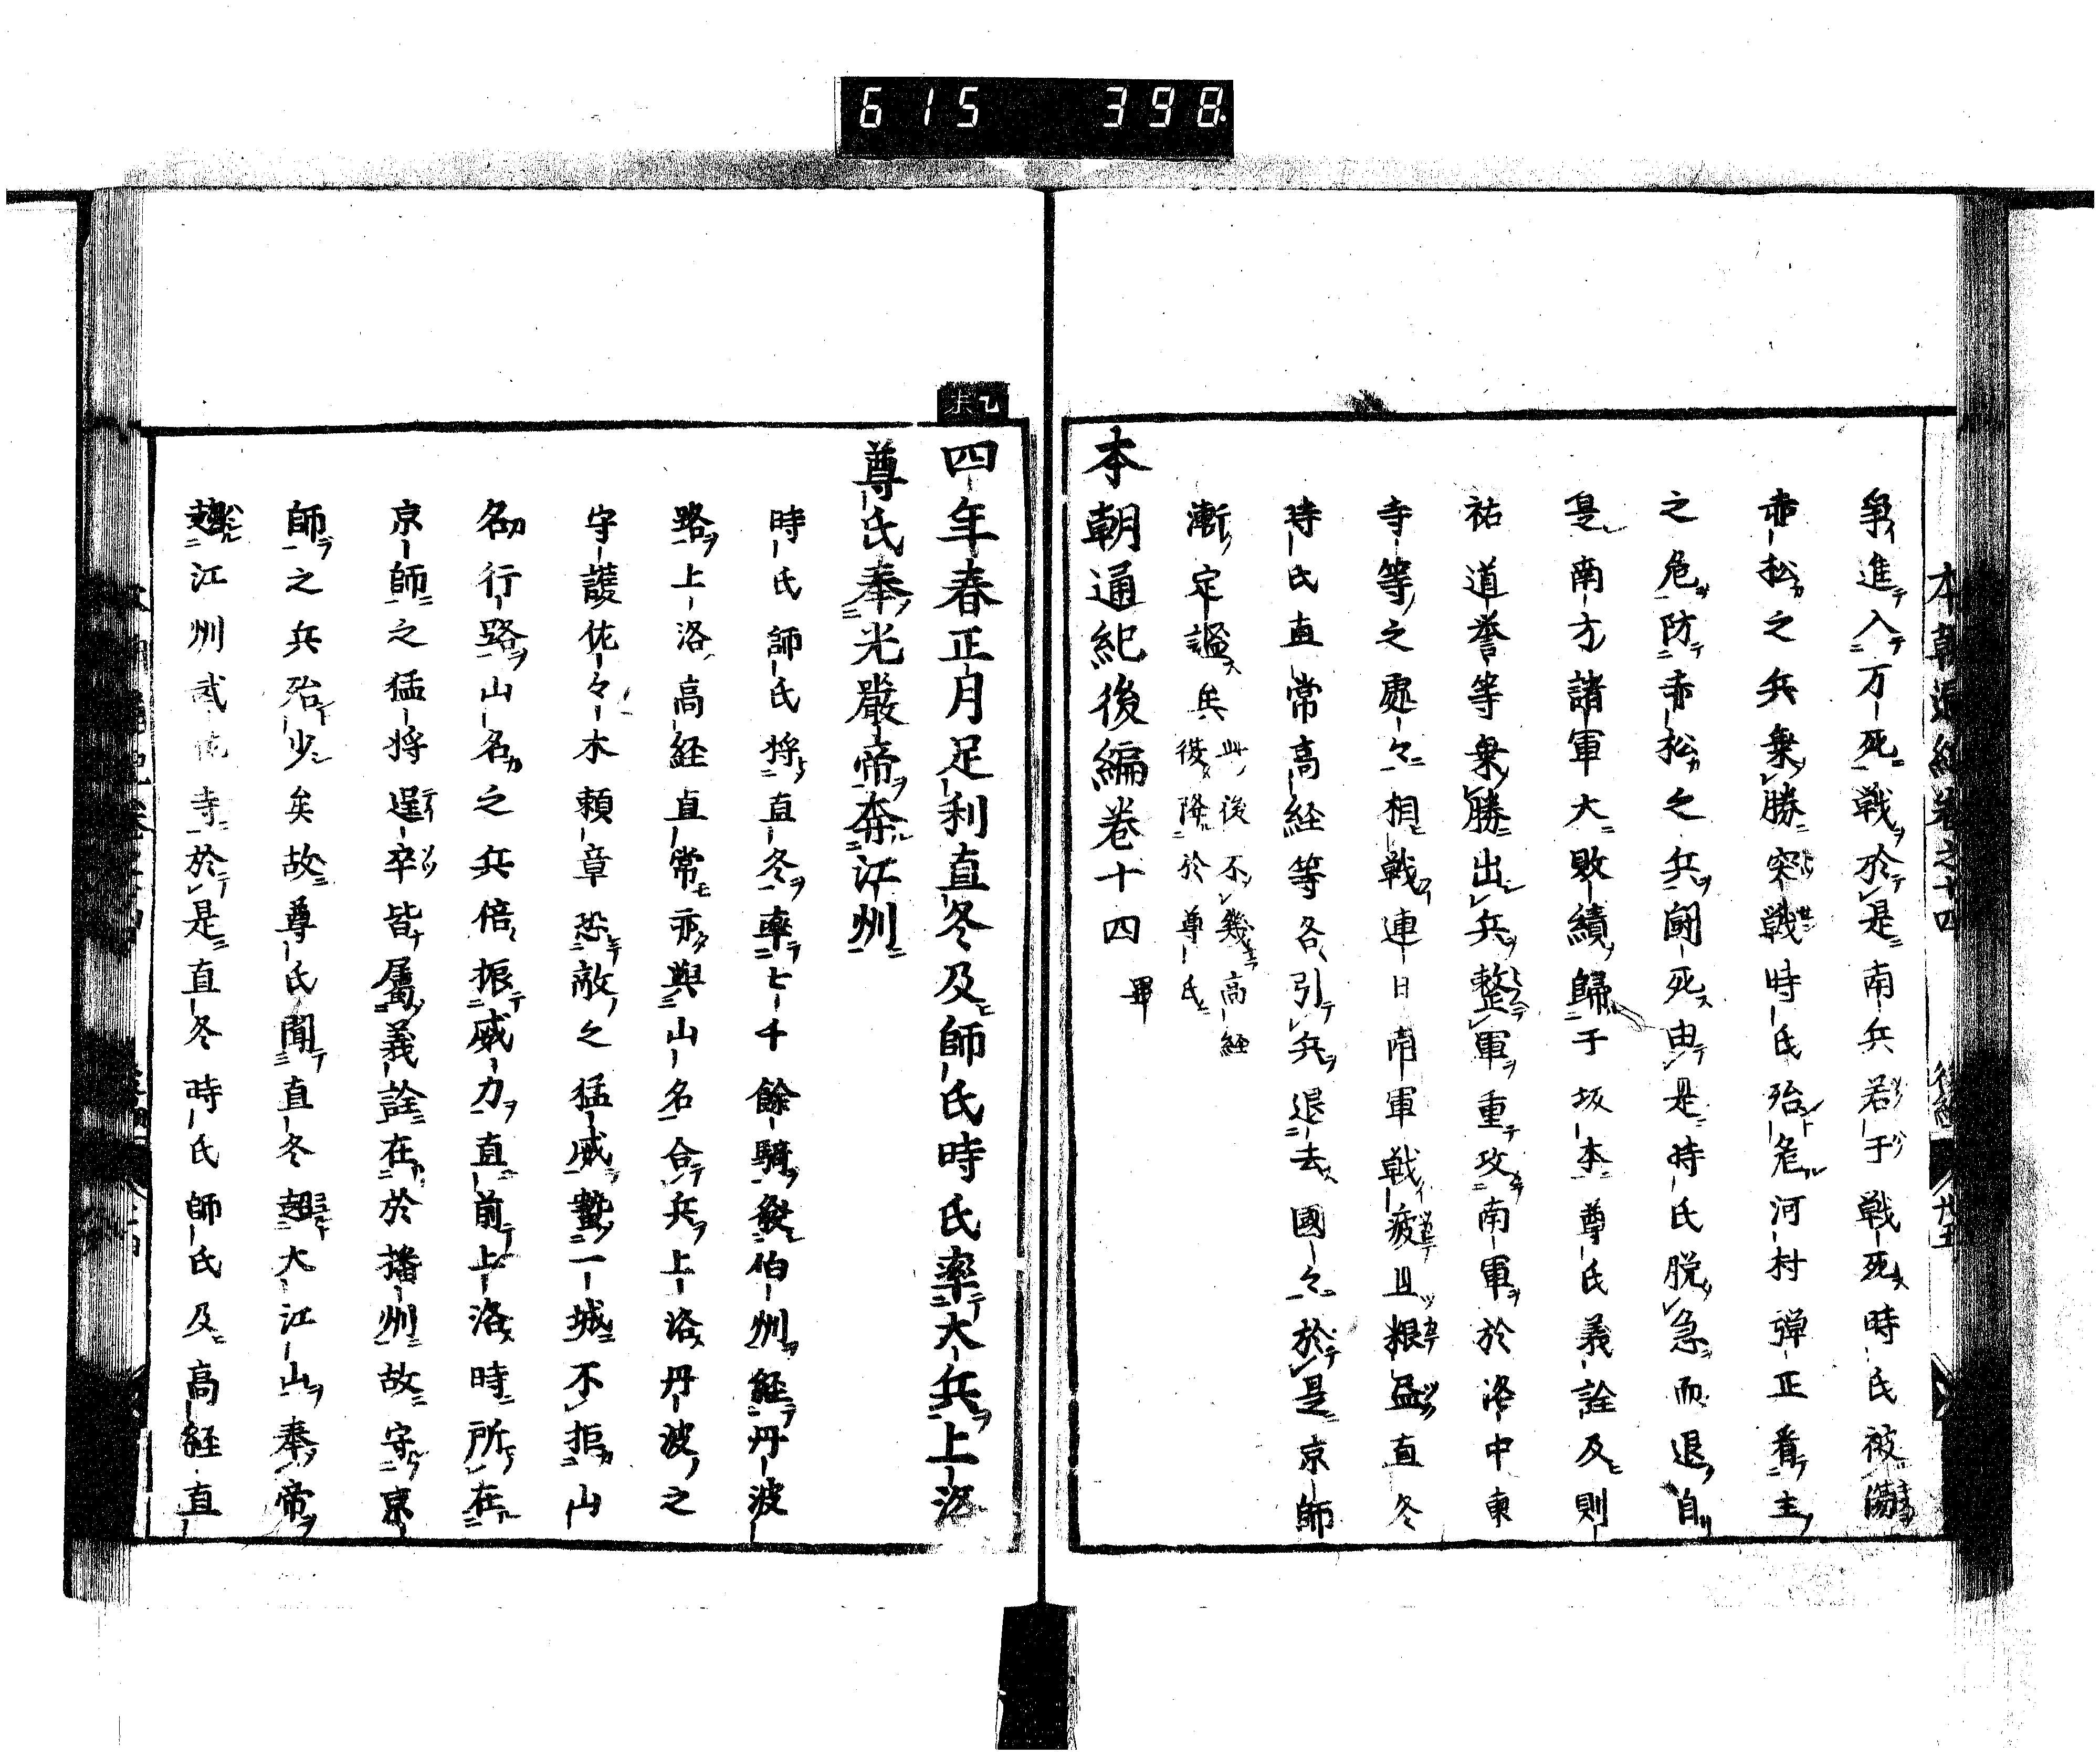 615 398
本朝通紀卷之十四 後編
爭進入万死戦於是南兵若干戦死時氏被傷
赤松之兵衆勝突戦時氏殆危河村弾正看主
之危防赤松之兵闘死由是時氏脱急而退自
是南方諸軍大敗績歸于坂本尊氏義詮及則
祐道誉等衆勝出兵整軍重攻南軍於洛中東
寺等之處々相戦連日南軍戦疲且粮盡直冬
時氏直常高経等各引兵退去國々於是京師
漸定謐矣 此後不幾高経復降於尊氏
本朝通紀後編卷十四 畢
乙未
四年春正月足利直冬及師氏時氏率大兵上洛
尊氏奉光嚴帝奔江州
時氏師氏将直冬率七千餘騎發伯州経丹波
路上洛高経直常亦與山名合兵上洛丹波之
守護佐々木頼章恐敵之猛威蟄一城不拒山
名行路山名之兵倍振威力直前上洛時所在
京師之猛将逞卒皆属義詮在於播州故守京
師之兵殆少矣故尊氏聞直冬超大江山奉帝
趣江州武佐寺於是直冬時氏師氏及高経直